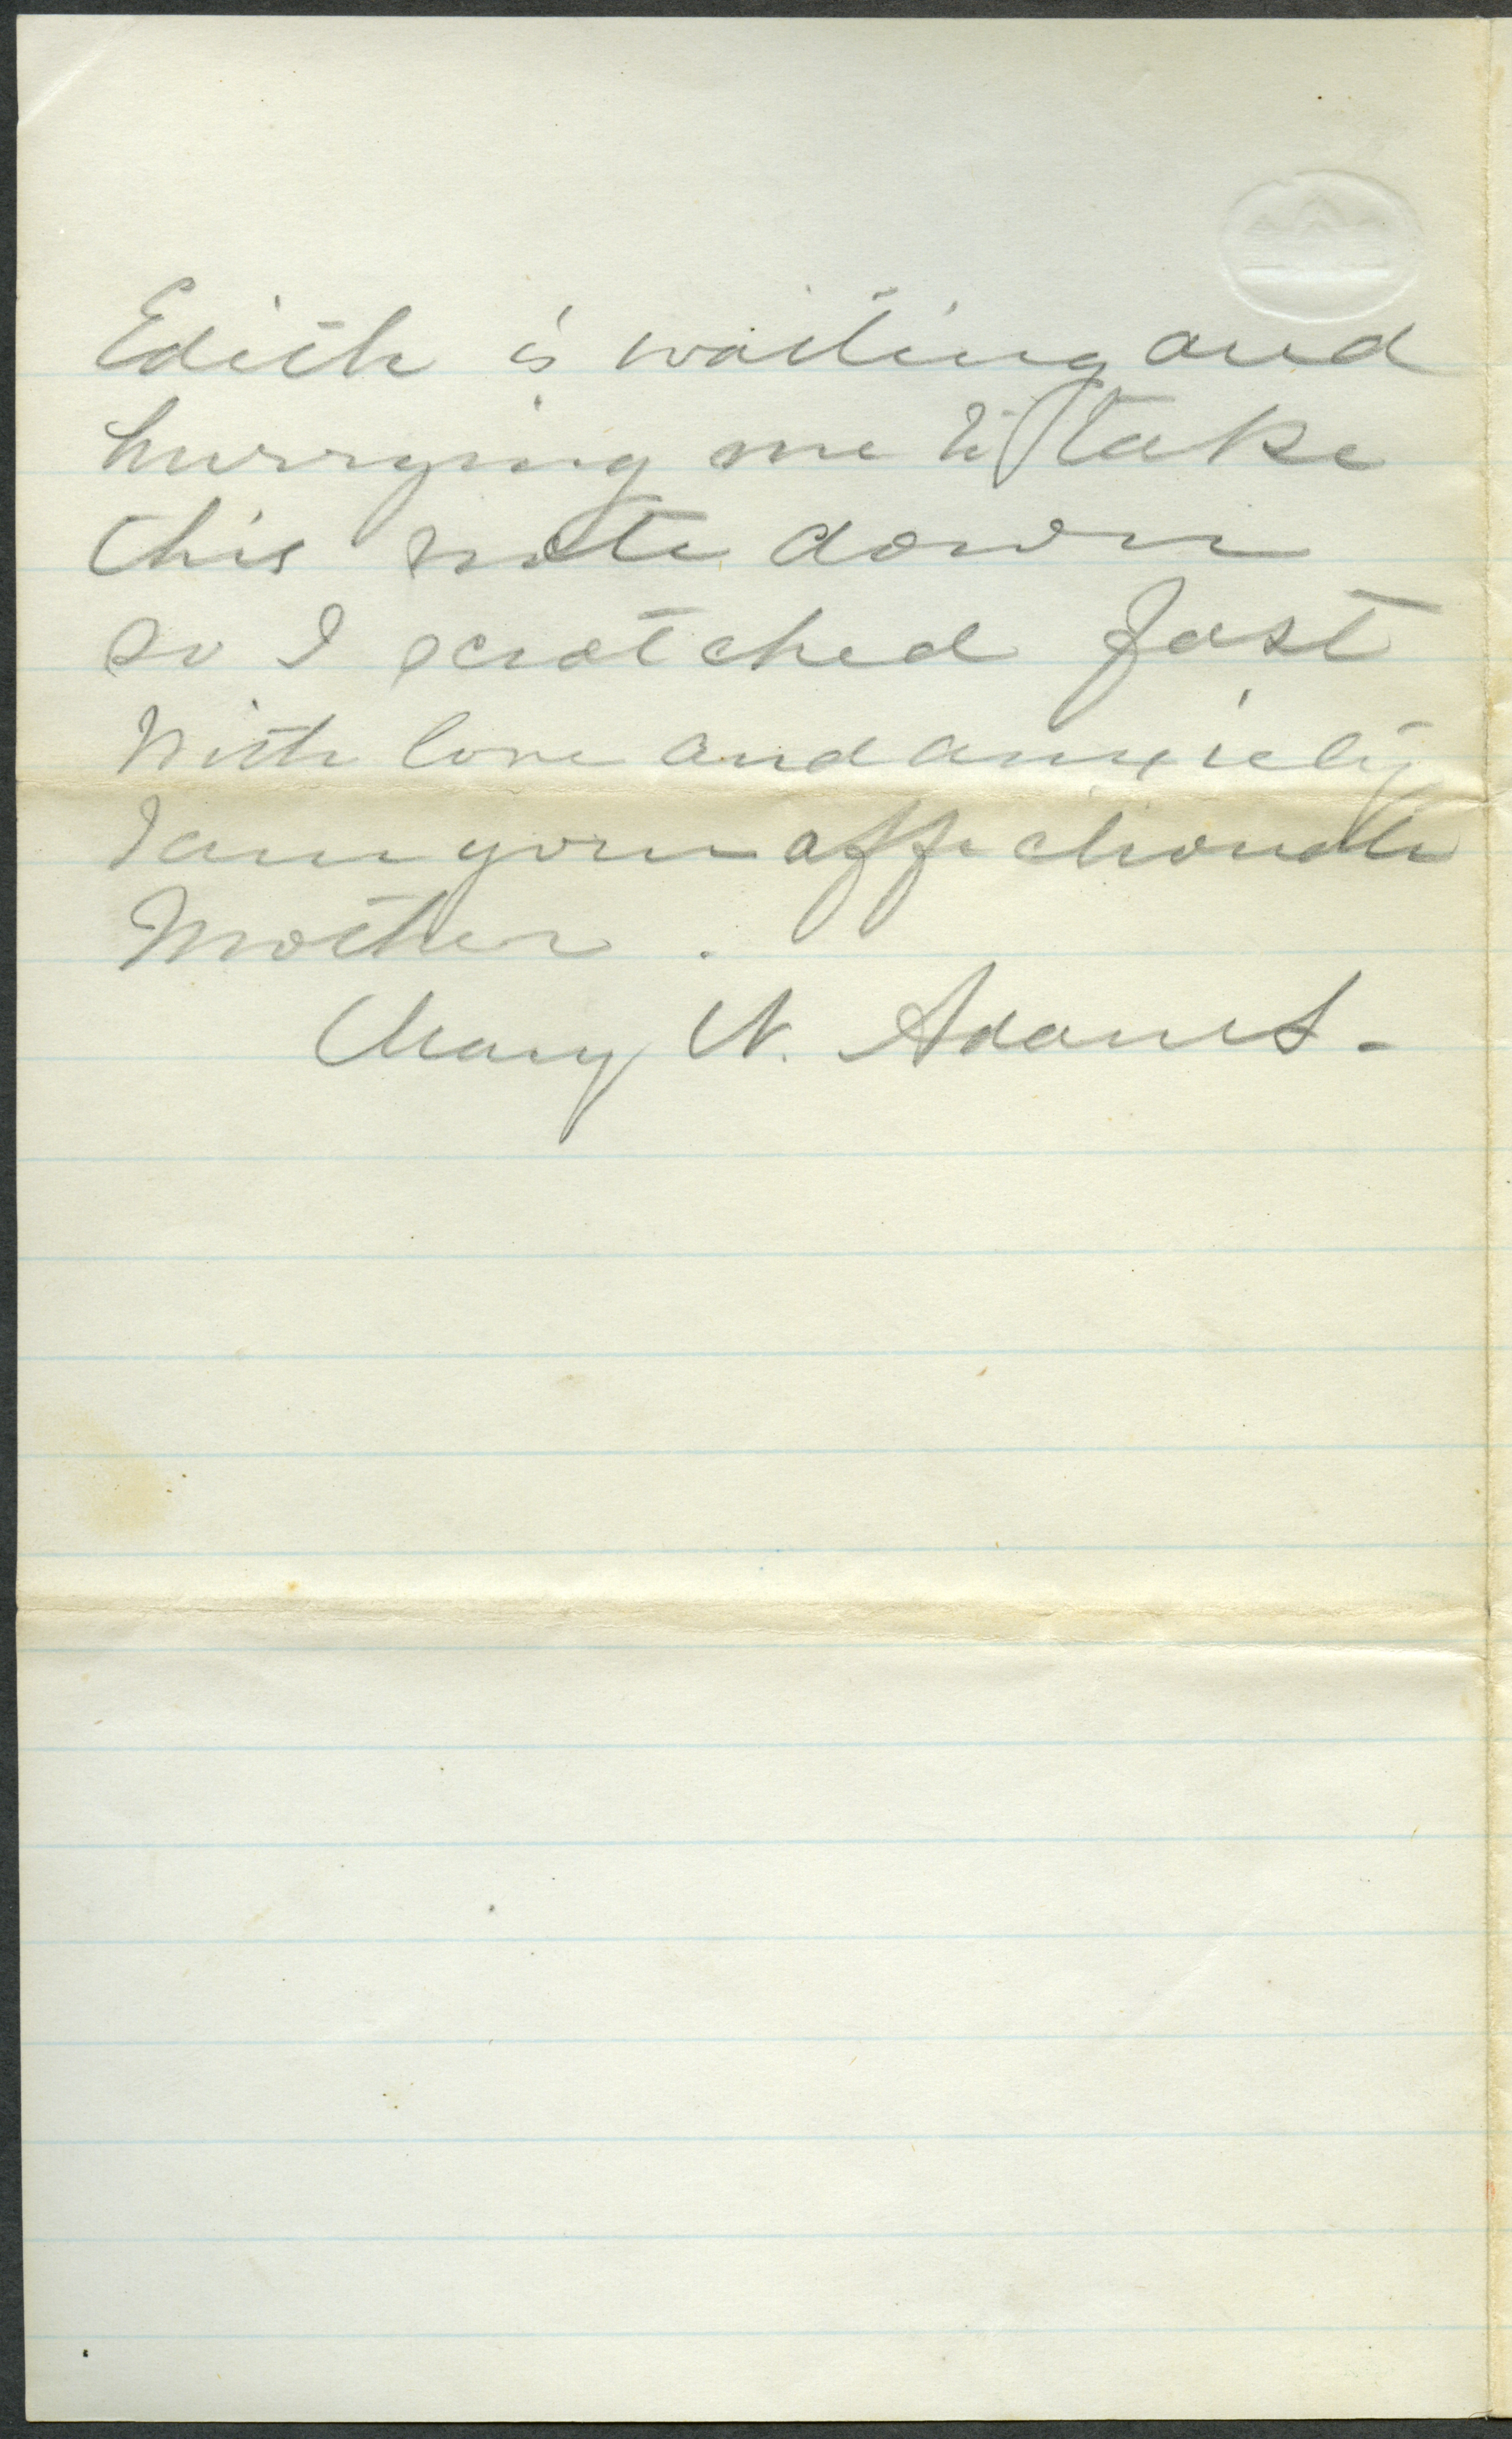 Edith is waiting and
hurrying me to take
this note down
so I scratched fast
With love and anxiety
I am your affectionate
Mother.
Mary N. Adams.